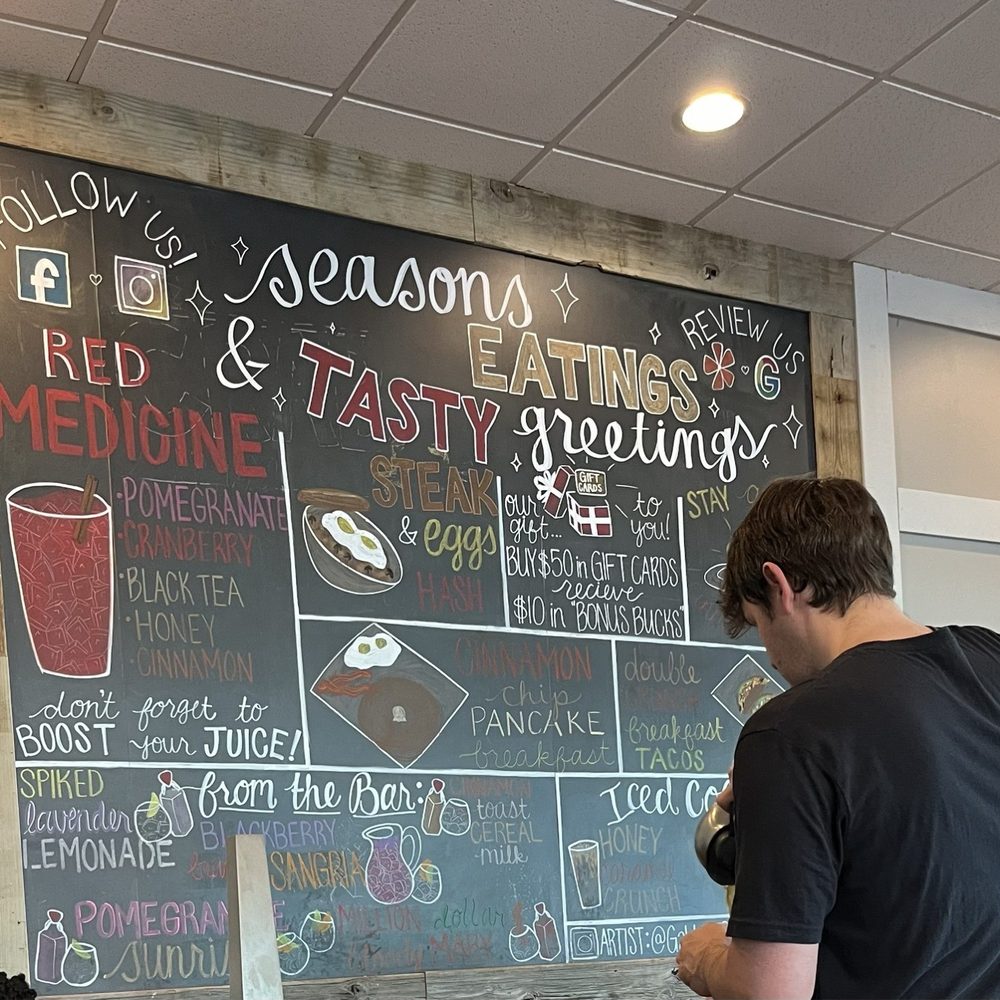 FOLLOW US!
f
seasons
EATINGS
& TASTY
greetings
REVIEW US
G
RED
MEDICINE
·POMEGRANATE
·CRANBERRY
·BLACK TEA
·HONEY
·CINNAMON
don't forget to
BOOST your JUICE!
STEAK
& eggs
HASH
GIFT
CARDS
our to
gift... you!
BUY $50 in GIFT CARDS
recieve
$10 in "BONUS BUCKS"
STAY
CINNAMON
chip
PANCAKE
breakfast
double
breakfast
TACOS
from the Bar:
SPIKED
lavender
LEMONADE
BLACKBERRY
SANGRIA
CINNAMON
toast
CEREAL
milk
POMEGRAN
sunri
MILLION dollar
bloody MARY
Iced Co
HONEY
caramel
CRUNCH
ARTIST:@Gol